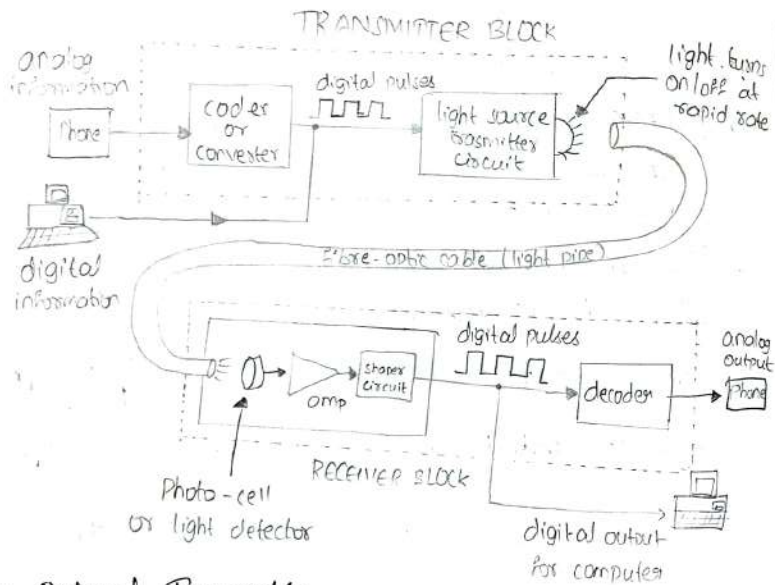 TRANSMITTER BLOCK
analog
information
Phone
coder
or
converter
digital pulses
light source
trasmitter
circuit
light turns
on/off at
rapid rate
digital
information
Fibre-optic cable (light pipe)
digital pulses
shaper
circuit
amp
decoder
analog
output
Phone
RECEIVER BLOCK
Photo-cell
or light detector
digital output
for computer